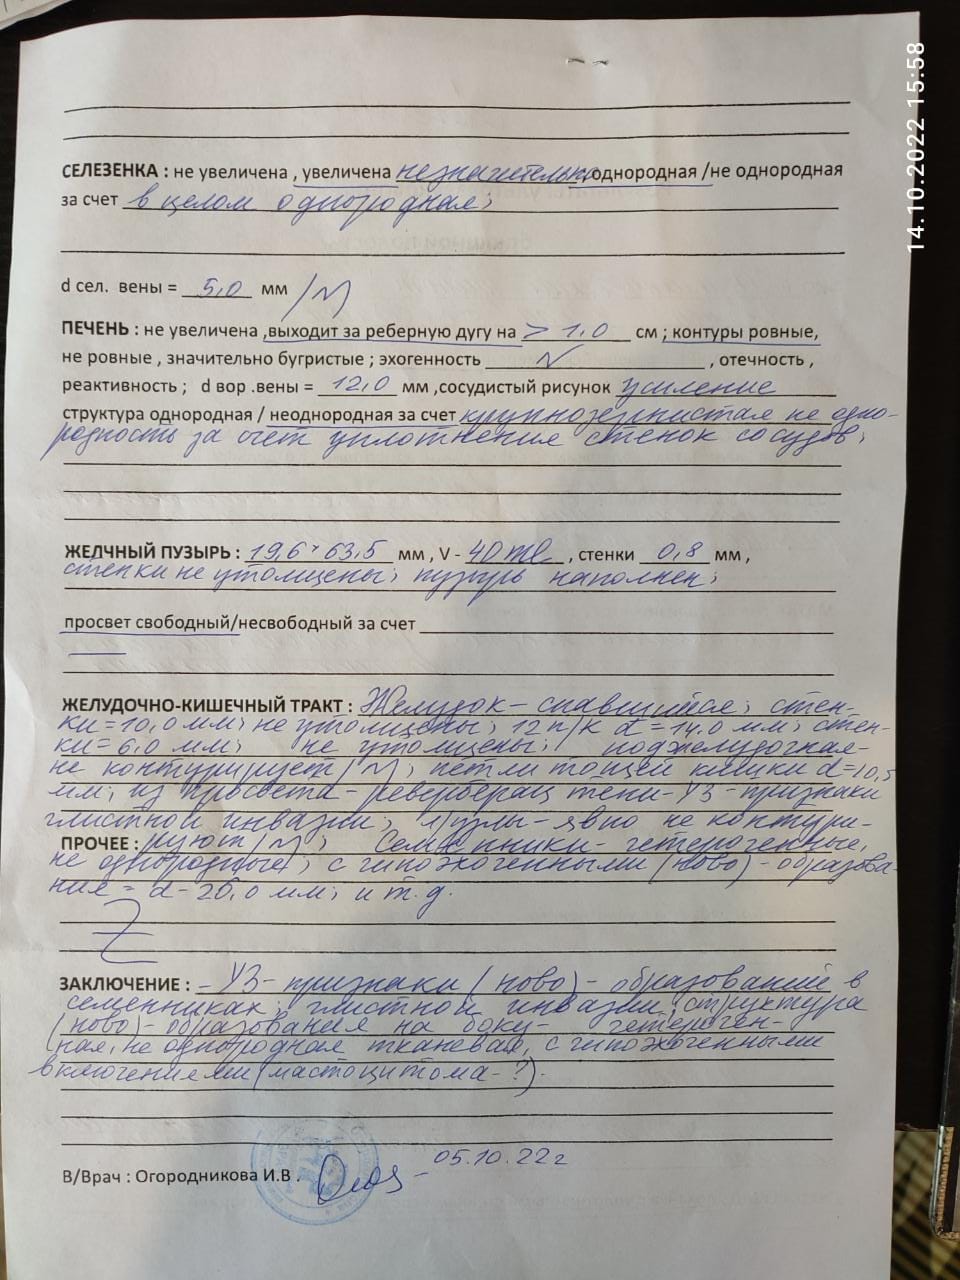 14.10.2022 15:58
СЕЛЕЗЕНКА : не увеличена , увеличена незначительно , однородная /не однородная
за счет в целом однородная;
d сел. вены = 5,0 мм /N
ПЕЧЕНЬ : не увеличена ,выходит за реберную дугу на > 1.0 см ; контуры ровные,
не ровные , значительно бугристые ; эхогенность N , отечность ,
реактивность ; d вор .вены = 12,0 мм ,сосудистый рисунок усиление
структура однородная / неоднородная за счет крупнозернистая не одно-
родность за счет уплотнения стенок сосудов;
ЖЕЛЧНЫЙ ПУЗЫРЬ : 19,6 × 63,5 мм , V - 40 ml , стенки 0,8 мм ,
стенки не утолщены; пузырь наполнен;
просвет свободный/несвободный за счет
ЖЕЛУДОЧНО-КИШЕЧНЫЙ ТРАКТ : Желудок - спавшийся; стен-
ки = 10,0 мм; не утолщены; 12 п/к d = 14,0 мм; стен-
ки = 6,0 мм; не утолщены; поджелудочная -
не контурирует /N; петли тощей кишки d = 10,5
мм; из просвета - реверберац тени - УЗ - признаки
глистной инвазии; л/узлы - явно не контури-
ПРОЧЕЕ : руют /N; Семенники - гетерогенные,
не однородные; с гипоэхогенными (ново) - образова-
ния = d - 26,0 мм; и т.д.
ЗАКЛЮЧЕНИЕ : - УЗ - признаки (ново) - образований в
семенниках; глистной инвазии; структура
(ново) - образования на боку - гетероген-
ная, не однородная тканевая, с гипоэхогенными
включениями (мастоцитома - ?).
В/Врач : Огородникова И.В . 05.10.22г